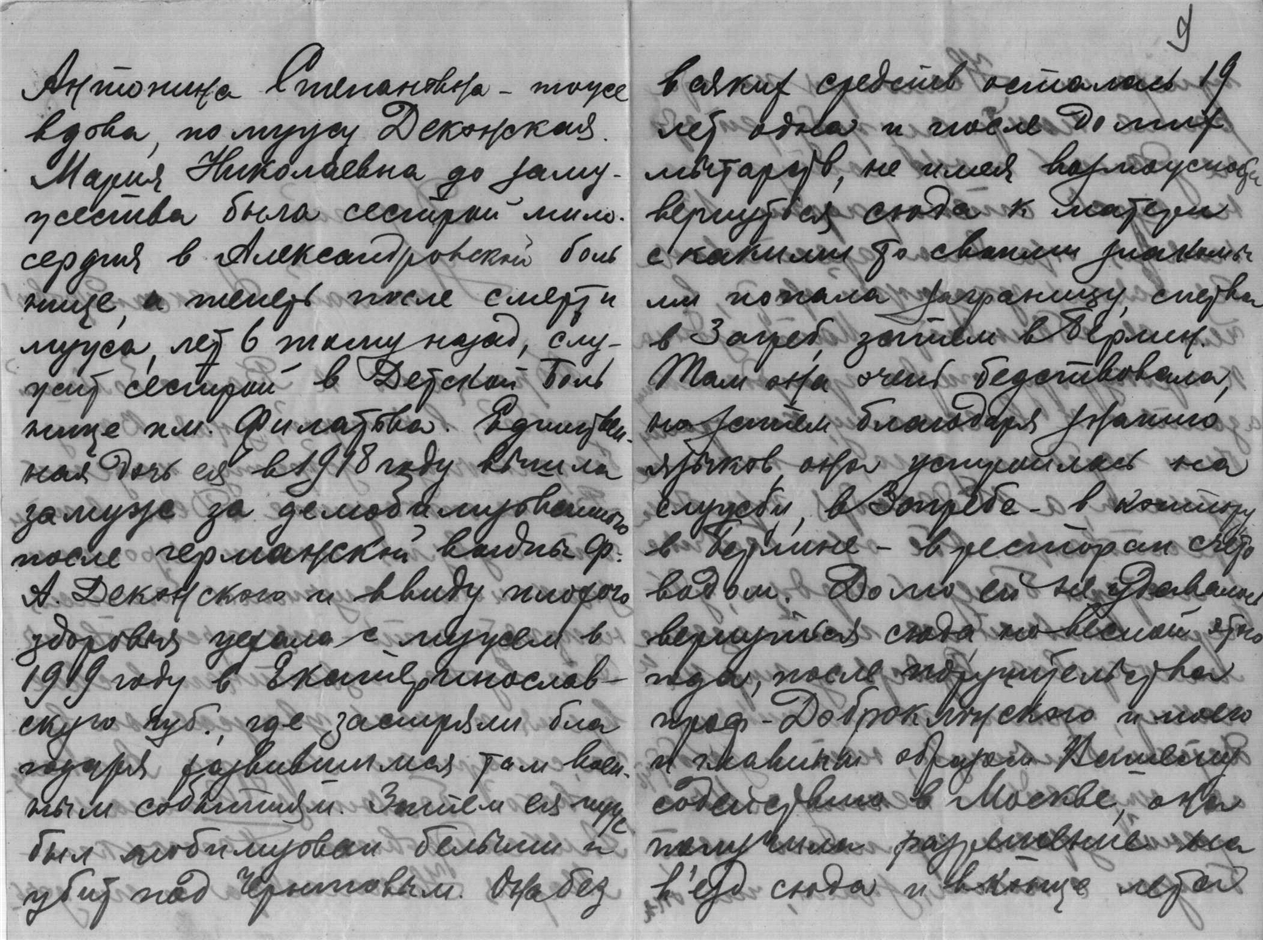 Антонина Степановна - тоже
вдова, по мужу Деконская.
Мария Николаевна до заму-
жества была сестрой мило-
сердия в Александровской боль
нице, а теперь после смерти
мужа, лет 6 тому назад, слу-
жит сестрой в Детской боль
нице им. Филатова. Единствен-
ная дочь ея в 1918 году вышла
замуж за демобилизованного
после германской войны Ф.
А. Деконского и ввиду плохого
здоровья уехала с мужем в
1919 году в Екатеринослав-
скую губ., где застряли бла
годаря развившимся там воен-
ным событиям. Затем ея муж
был мобилизован белыми и
убит под Черниговым. Она без
9
всяких средств осталась 19
лет одна и после долгих
мытарств, не имея возможности
вернуться сюда к матери
с какими то своими знакомы
ми попала заграницу, сперва
в Загреб, затем в Берлин.
Там она очень бедствовала,
но затем благодаря знанию
языков, она устроилась на
службу, в Загребе - в контору
в Берлине - в ресторан счето
водом. Долго ей не удавалось
вернуться сюда, но весной этого
года, после поручительства
проф. Доброклонского и моего
и главным образом Вашему
содействию в Москве, она
получила разрешение на
в'езд сюда и в конце лета